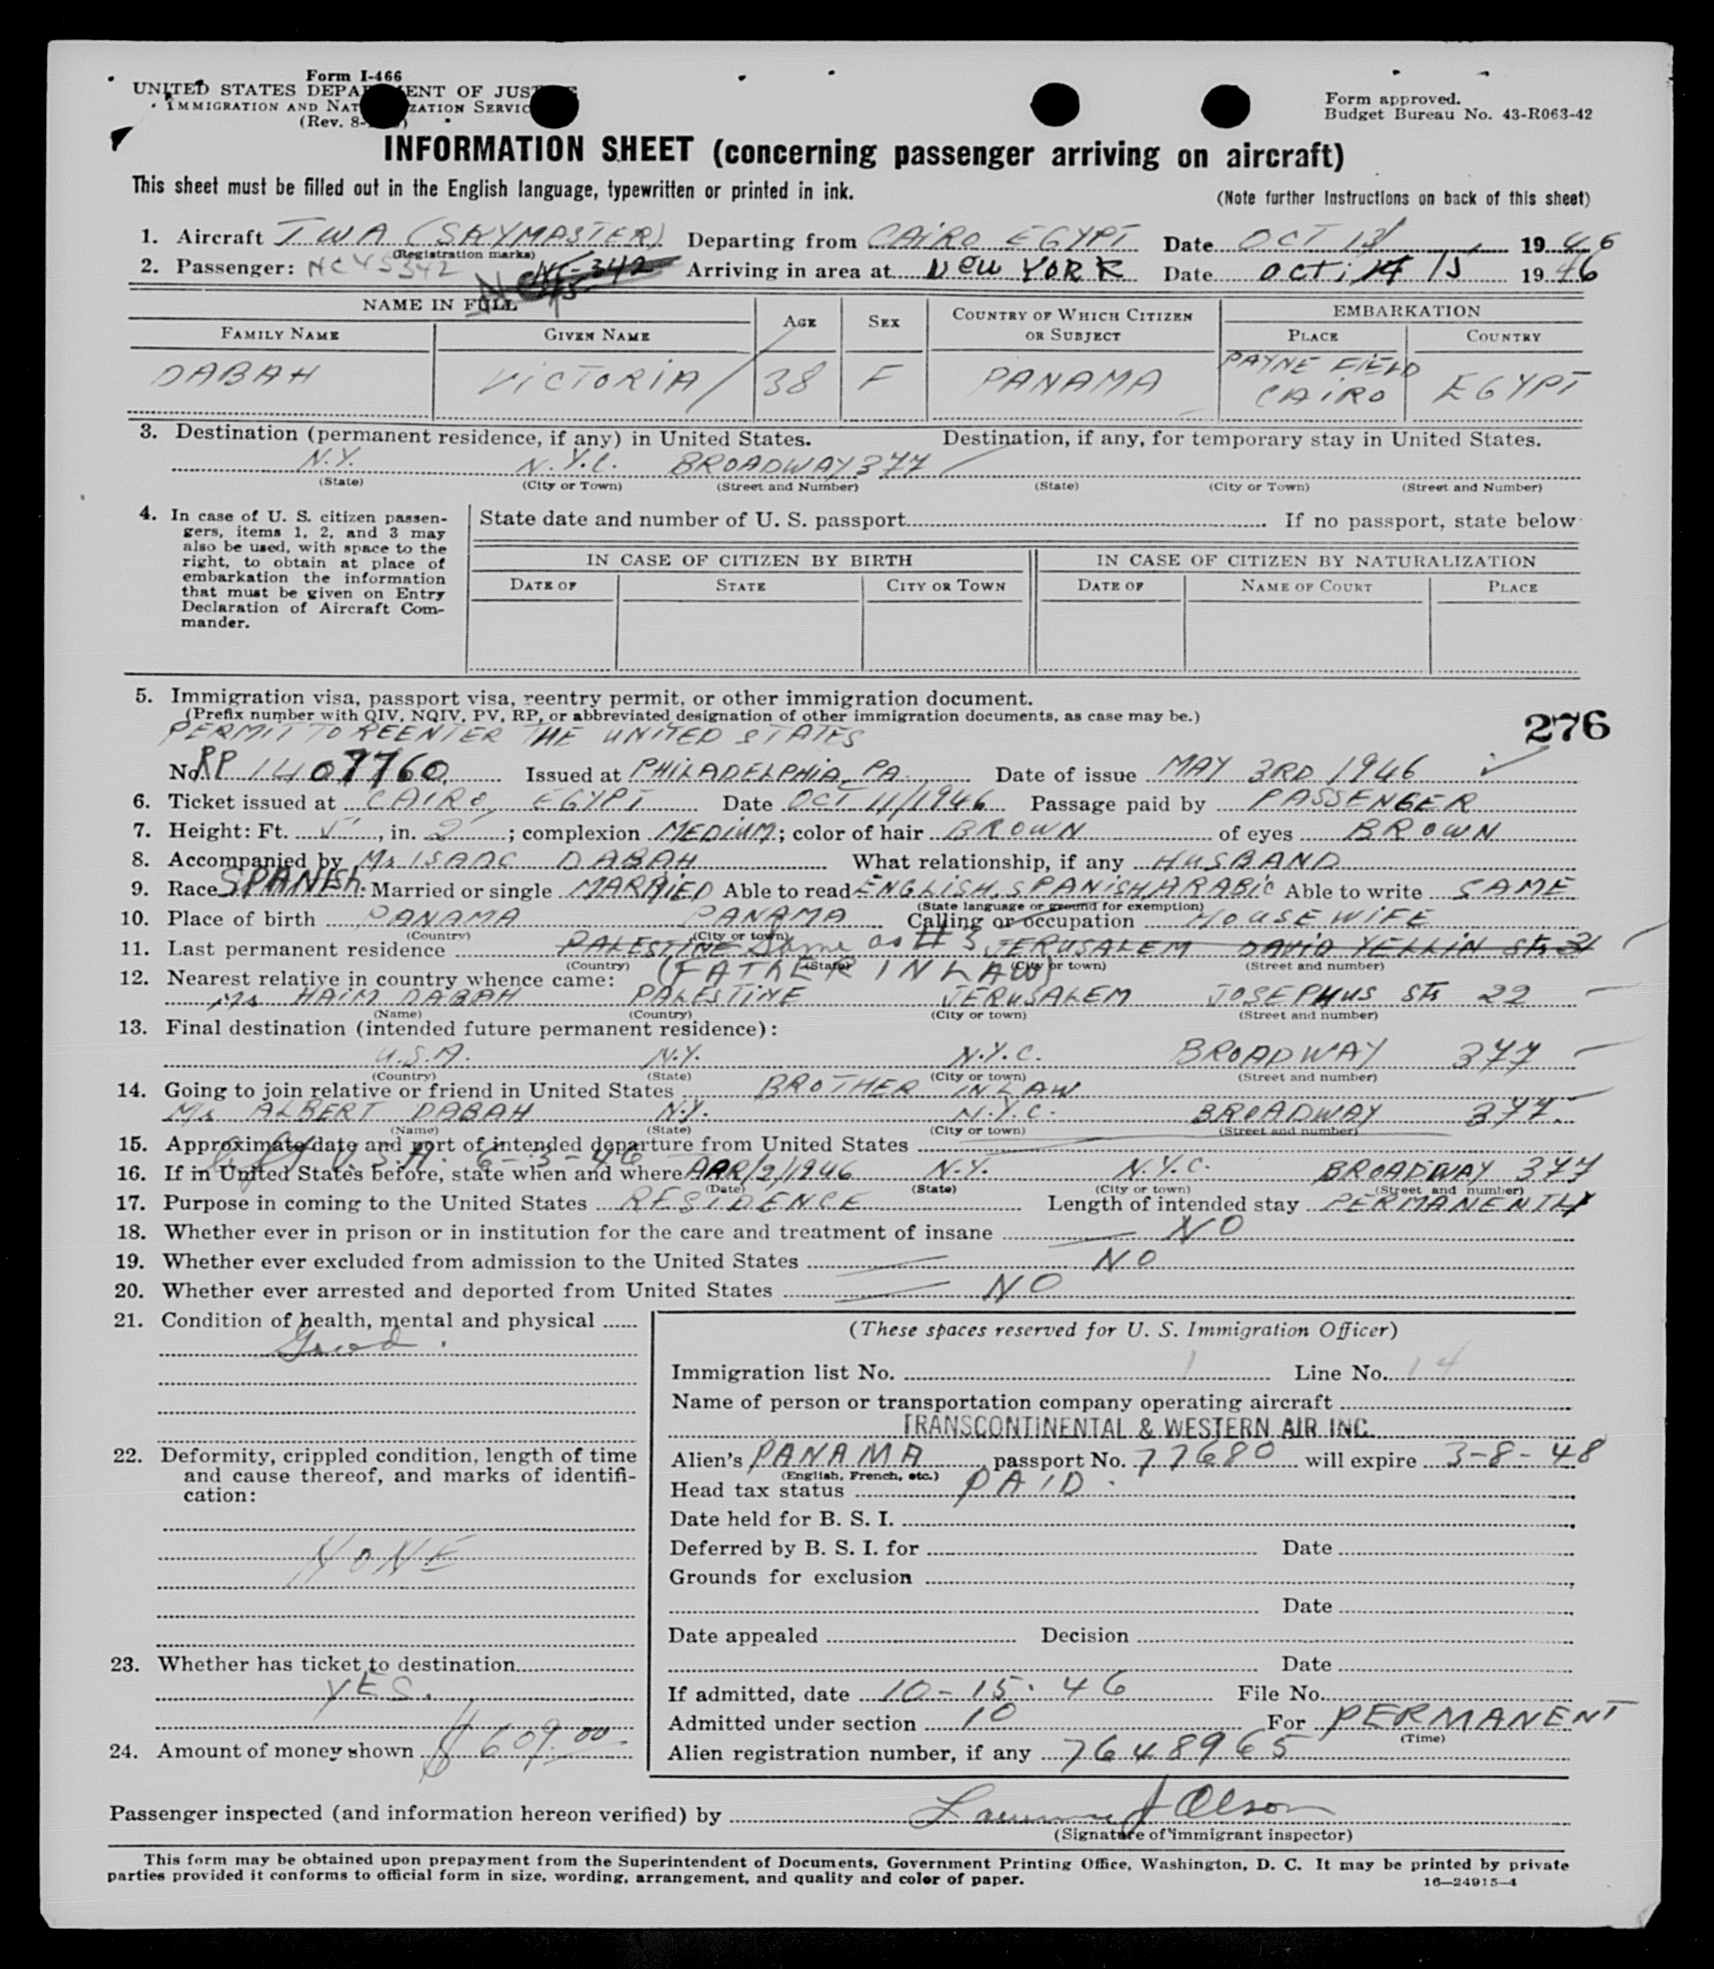 Form I-466
UNITED STATES DEPA ENT OF JUS
IMMIGRATION AND NAT ZATION SERVIC
(Rev. 8-
Form approved.
Budget Bureau No. 43-R063-42
INFORMATION SHEET (concerning passenger arriving on aircraft)
This sheet must be filled out in the English language, typewritten or printed in ink.
(Note further instructions on back of this sheet)
1. Aircraft TWA (SKYMASTER) Departing from CAIRO EGYPT Date OCT 13/ 1946
(Registration marks)
2. Passenger: NC45342 NC-342 Arriving in area at NEW YORK Date OCT. 14 15 1946
NAME IN FULL AGE SEX COUNTRY OF WHICH CITIZEN OR SUBJECT EMBARKATION
FAMILY NAME GIVEN NAME PLACE COUNTRY
DABAH VICTORIA / 38 F PANAMA PAYNE FIELD CAIRO EGYPT
3. Destination (permanent residence, if any) in United States. Destination, if any, for temporary stay in United States.
N.Y. N.Y.C. BROADWAY 377
(State) (City or Town) (Street and Number) (State) (City or Town) (Street and Number)
4. In case of U. S. citizen passen-
gers, items 1, 2, and 3 may
also be used, with space to the
right, to obtain at place of
embarkation the information
that must be given on Entry
Declaration of Aircraft Com-
mander.
State date and number of U. S. passport If no passport, state below
IN CASE OF CITIZEN BY BIRTH IN CASE OF CITIZEN BY NATURALIZATION
DATE OF STATE CITY OR TOWN DATE OF NAME OF COURT PLACE
5. Immigration visa, passport visa, reentry permit, or other immigration document.
(Prefix number with QIV, NQIV, PV, RP, or abbreviated designation of other immigration documents, as case may be.)
276
PERMIT TO REENTER THE UNITED STATES
No. RP 1407760 Issued at PHILADELPHIA, PA. Date of issue MAY 3RD 1946
6. Ticket issued at CAIRO, EGYPT Date OCT 11/1946 Passage paid by PASSENGER
7. Height: Ft. 5, in. 2; complexion MEDIUM; color of hair BROWN of eyes BROWN
8. Accompanied by Mr ISAAC DABAH What relationship, if any HUSBAND
9. Race SPANISH Married or single MARRIED Able to read ENGLISH, SPANISH, ARABIC Able to write SAME
(State language or ground for exemption)
10. Place of birth PANAMA PANAMA Calling or occupation HOUSE WIFE
(Country) (City or town)
11. Last permanent residence PALESTINE Same as # 3 JERUSALEM DAVID YELLIN Str. 31
(Country) (State) (City or town) (Street and number)
12. Nearest relative in country whence came: (FATHER IN LAW)
Mr HAIM DABAH PALESTINE JERUSALEM JOSEPHUS Str 22
(Name) (Country) (City or town) (Street and number)
13. Final destination (intended future permanent residence):
U.S.A. N.Y. N.Y.C. BROADWAY 377
(Country) (State) (City or town) (Street and number)
14. Going to join relative or friend in United States BROTHER IN LAW
Mr ALBERT DABAH N.Y. N.Y.C. BROADWAY 377
(Name) (State) (City or town) (Street and number)
15. Approximate date and port of intended departure from United States
Left U.S.A. 6-3-46
16. If in United States before, state when and where APR/2/1946 N.Y. N.Y.C. BROADWAY 377
(Date) (State) (City or town) (Street and number)
17. Purpose in coming to the United States RESIDENCE Length of intended stay PERMANENTLY
18. Whether ever in prison or in institution for the care and treatment of insane NO
19. Whether ever excluded from admission to the United States NO
20. Whether ever arrested and deported from United States NO
21. Condition of health, mental and physical
Good.
22. Deformity, crippled condition, length of time
and cause thereof, and marks of identifi-
cation:
NONE
23. Whether has ticket to destination
YES.
24. Amount of money shown $ 609.00
(These spaces reserved for U. S. Immigration Officer)
Immigration list No. 1 Line No. 14
Name of person or transportation company operating aircraft
TRANSCONTINENTAL & WESTERN AIR INC.
Alien's PANAMA passport No. 77680 will expire 3-8-48
(English, French, etc.)
Head tax status PAID.
Date held for B. S. I.
Deferred by B. S. I. for Date
Grounds for exclusion
Date
Date appealed Decision
Date
If admitted, date 10-15-46 File No.
Admitted under section 10 For PERMANENT
(Time)
Alien registration number, if any 7648965
Passenger inspected (and information hereon verified) by Lawrence J Olson
(Signature of immigrant inspector)
This form may be obtained upon prepayment from the Superintendent of Documents, Government Printing Office, Washington, D. C. It may be printed by private
parties provided it conforms to official form in size, wording, arrangement, and quality and color of paper.
16—24915-4